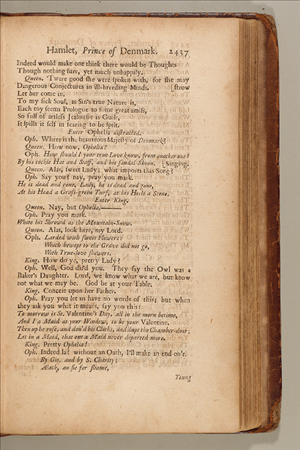 Hamlet, Prince of Denmark. 2437
Indeed would make one think there would be Thoughts
Though nothing sure, yet much unhappily.
Queen. 'Twere good she were spoken with, for she may
Dangerous Conjectures in ill-breeding Minds. [strow
Let her come in.
To my sick Soul, as Sin's true Nature is,
Each toy seems Prologue to some great amiss,
So full of artless Jealousie is Guilt,
It spills it self in fearing to be spilt.
Enter Ophelia distracted.
Oph. Where is the beauteous Majesty of Denmark?
Queen. How now, Ophelia?
Oph. How should I your true Love know, from another one?
By his cockle Hat and Staff, and his sandal Shoon. [Singing.
Queen. Alas, sweet Lady; what imports this Song?
Oph. Say you? nay, pray you mark.
He is dead and gone, Lady, he is dead and gone,
At his Head a Grass-green Turf, at his Heels a Stone.
Enter King.
Queen. Nay, but Ophelia,——
Oph. Pray you mark.
White his Shrowd as the Mountain-Snow.
Queen. Alas, look here, my Lord.
Oph. Larded with sweet Flowers:
Which bewept to the Grave did not go,
With True-love showers.
King. How do ye, pretty Lady?
Oph. Well, God dil'd you. They say the Owl was a
Baker's Daughter. Lord, we know what we are, but know
not what we may be. God be at your Table.
King. Conceit upon her Father.
Oph. Pray you let us have no words of this; but when
they ask you what it means, say you this:
To morrow is St. Valentine's Day, all in the morn betime,
And I a Maid at your Window, to be your Valentine.
Then up he rose, and don'd his Cloths, and dupt the Chamber-door;
Let in a Maid, that out a Maid never departed more.
King. Pretty Ophelia!
Oph. Indeed la? without an Oath, I'll make an end on't.
By Gis, and by S. Charity:
Alack, and fie for shame,
Young